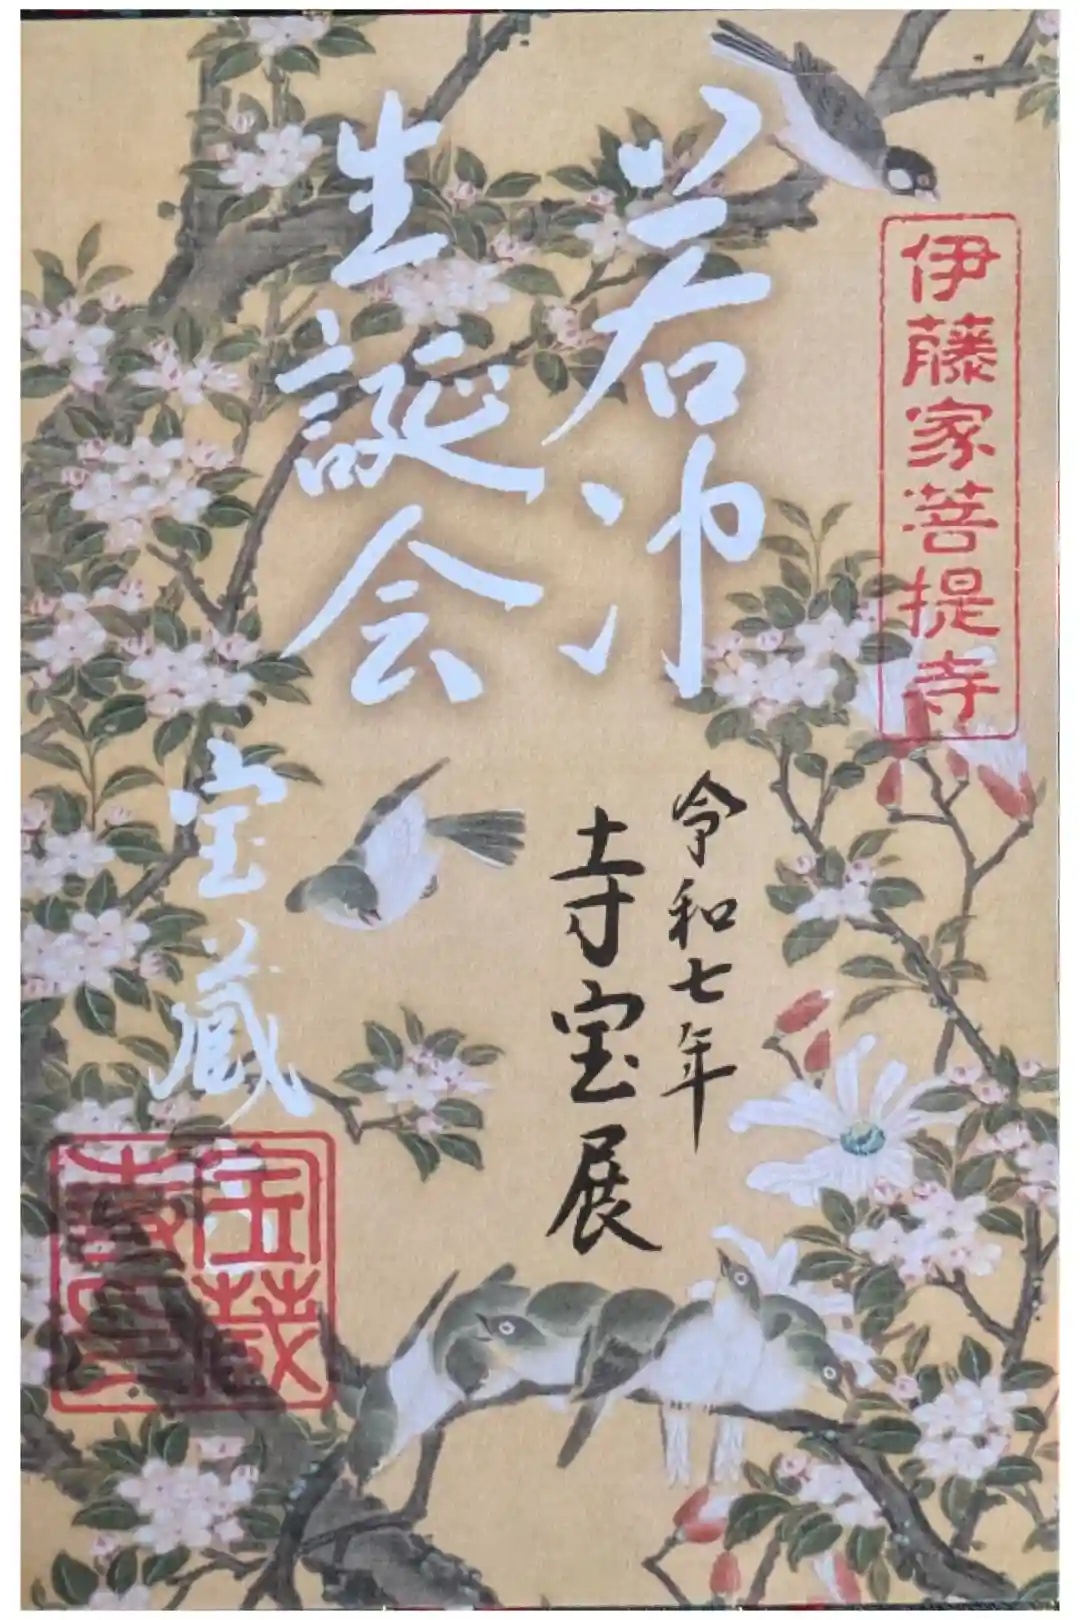 伊藤家菩提寺
若冲
生誕会
令和七年
寺宝展
宝蔵
宝蔵